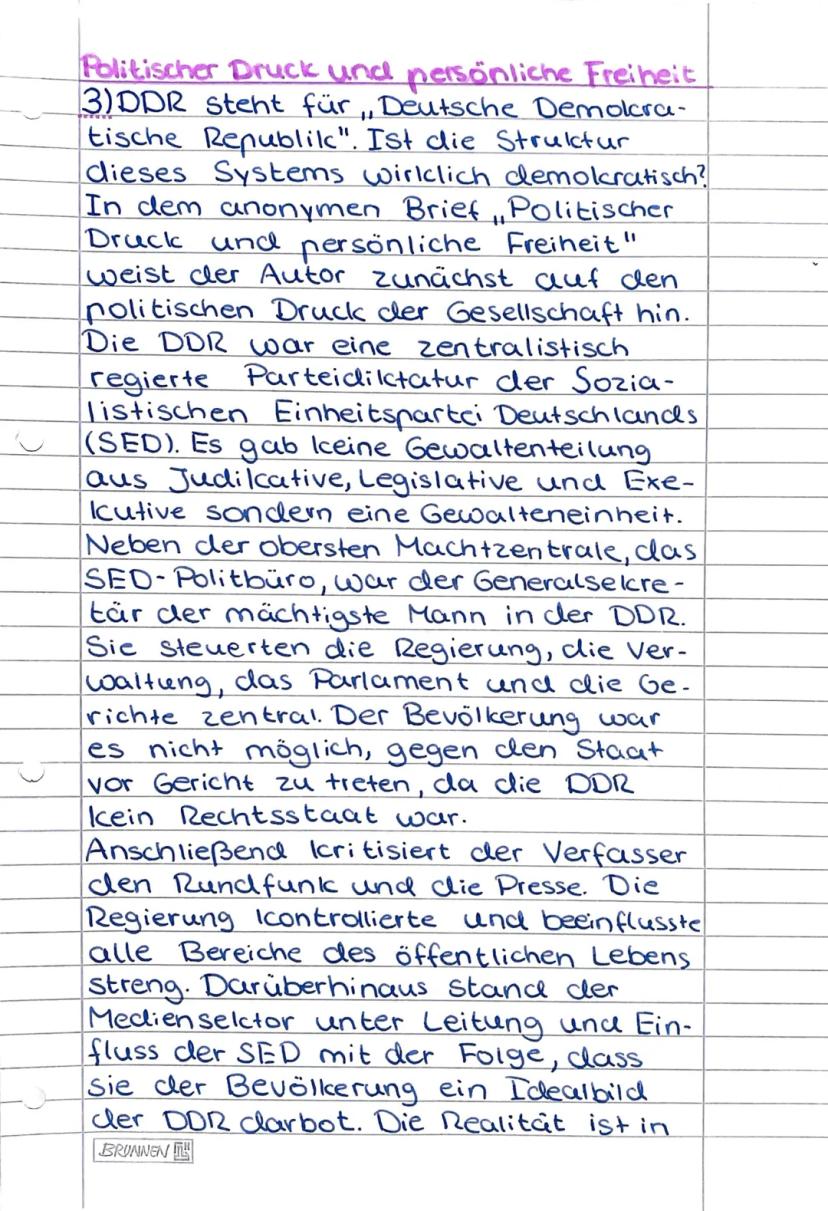 Politischer Druck und persönliche Freiheit
3) DDR steht für „Deutsche Demokra-
tische Republik". Ist die Struktur
dieses Systems wirklich demokratisch?
In dem anonymen Brief „Politischer
Druck und persönliche Freiheit"
weist der Autor zunächst auf den
politischen Druck der Gesellschaft hin.
Die DDR war eine zentralistisch
regierte Parteidiktatur der Sozia-
listischen Einheitspartei Deutschlands
(SED). Es gab keine Gewaltenteilung
aus Judikative, Legislative und Exe-
kutive sondern eine Gewalteneinheit.
Neben der obersten Machtzentrale, das
SED-Politbüro, war der Generalsekre-
tär der mächtigste Mann in der DDR.
Sie steuerten die Regierung, die Ver-
waltung, das Parlament und die Ge-
richte zentral. Der Bevölkerung war
es nicht möglich, gegen den Staat
vor Gericht zu treten, da die DDR
kein Rechtsstaat war.
Anschließend kritisiert der Verfasser
den Rundfunk und die Presse. Die
Regierung kontrollierte und beeinflusste
alle Bereiche des öffentlichen Lebens
streng. Darüberhinaus stand der
Mediensektor unter Leitung und Ein-
fluss der SED mit der Folge, dass
sie der Bevölkerung ein Idealbild
der DDR darbot. Die Realität ist in
BRUNNEN